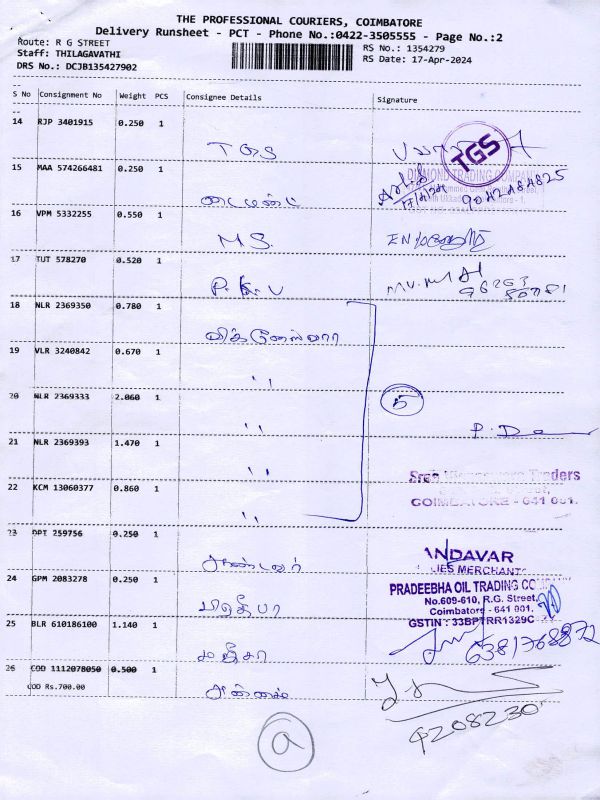 THE PROFESSIONAL COURIERS, COIMBATORE
Delivery Runsheet - PCT - Phone No.:0422-3505555 - Page No.:2
Route: R G STREET
Staff: THILAGAVATHI
DRS No.: DCJB135427902
RS No.: 1354279
RS Date: 17-Apr-2024
S No Consignment No Weight PCS Consignee Details Signature
14 RJP 3401915 0.250 1
TGS
TGS
15 MAA 574266481 0.250 1
DIAMOND TRADING COMPANY
டைமண்ட்
17/4/24 9042484825
16 VPM 5332255 0.550 1
M.S.
17 TUT 578270 0.520 1
P.K.V
18 NLR 2369350 0.780 1
விக்னேஸ்வரா
19 VLR 3240842 0.670 1
"
20 NLR 2369333 2.060 1
"
5
21 NLR 2369393 1.470 1
"
Traders
22 KCM 13060377 0.860 1
COIMBATORE - 641 001.
"
23 DPT 259756 0.250 1
ஆண்டவர்
ANDAVAR
MERCHANT
24 GPM 2083278 0.250 1
பிரதீபா
PRADEEBHA OIL TRADING COMPANY
No.609-610, R.G. Street,
Coimbatore - 641 001.
GSTIN : 33BPTRR1329C
25 BLR 610186100 1.140 1
மஞ்சா
6381768872
26 COD 1112078050 0.500 1
COD Rs.700.00
அன்னை
9208230
a